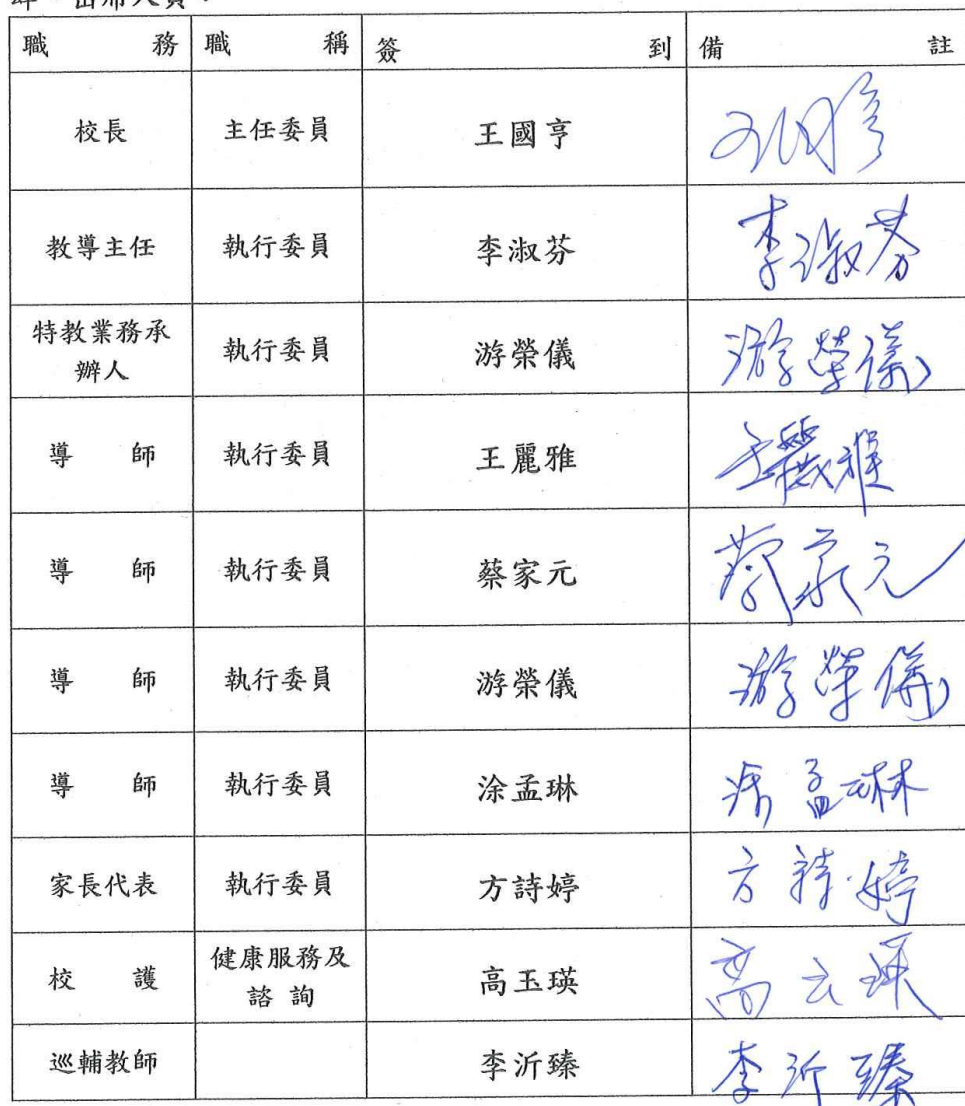 肆、出席人員：
職務 職稱 簽到 備註
校長 主任委員 王國亨
教導主任 執行委員 李淑芬 李淑芬
特教業務承
辦人 執行委員 游榮儀 游榮儀
導師 執行委員 王麗雅 王麗雅
導師 執行委員 蔡家元 蔡家元
導師 執行委員 游榮儀 游榮儀
導師 執行委員 涂孟琳 涂孟琳
家長代表 執行委員 方詩婷 方詩婷
校護 健康服務及
諮詢 高玉瑛 高玉瑛
巡輔教師 李沂臻 李沂臻